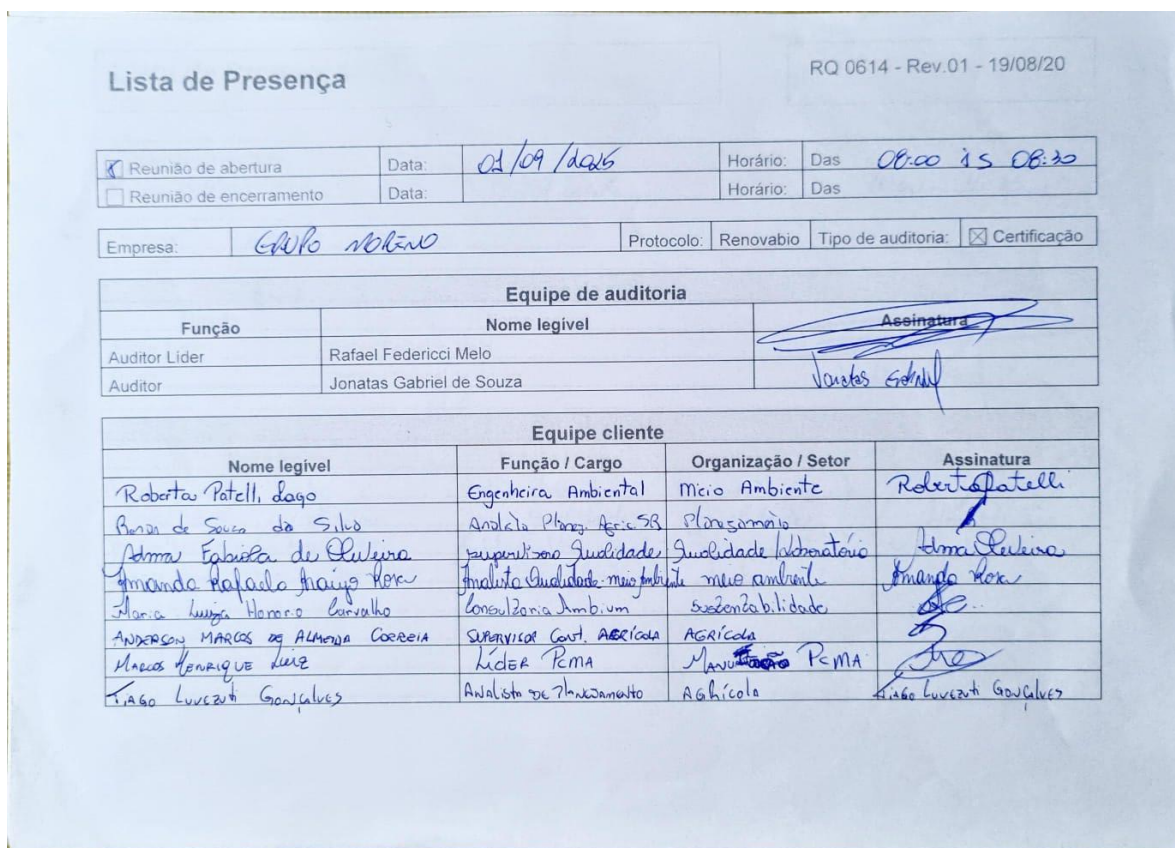 Lista de Presença
RQ 0614 - Rev.01 - 19/08/20
Reunião de abertura Data: 01/09/2025 Horário: Das 08:00 às 08:30
Reunião de encerramento Data: Horário: Das
Empresa: GRUPO MORENO Protocolo: Renovabio Tipo de auditoria: Certificação
Equipe de auditoria
Função Nome legível Assinatura
Auditor Líder Rafael Federicci Melo
Auditor Jonatas Gabriel de Souza Jonatas Gabriel
Equipe cliente
Nome legível Função / Cargo Organização / Setor Assinatura
Roberta Patelli Lago Engenheira Ambiental Meio Ambiente Roberta Patelli
de Souza da Silva Planejamento
Adma Fabiola de Oliveira supervisora Qualidade Qualidade/Laboratório Adma Oliveira
Amanda Rafaela Araújo Rosa Analista Qualidade-meio Ambiente meio ambiente Amanda Rosa
Maria Luiza Honorio Carvalho Consultoria Ambium Sustentabilidade
ANDERSON MARCOS DE ALMEIDA CORREIA SUPERVISOR CONT. AGRÍCOLA AGRÍCOLA
MARCOS HENRIQUE LUIZ LÍDER PCMA PCMA
TIAGO LUVEZUTI GONÇALVES ANALISTA DE PLANEJAMENTO AGRÍCOLA TIAGO LUVEZUTI GONÇALVES